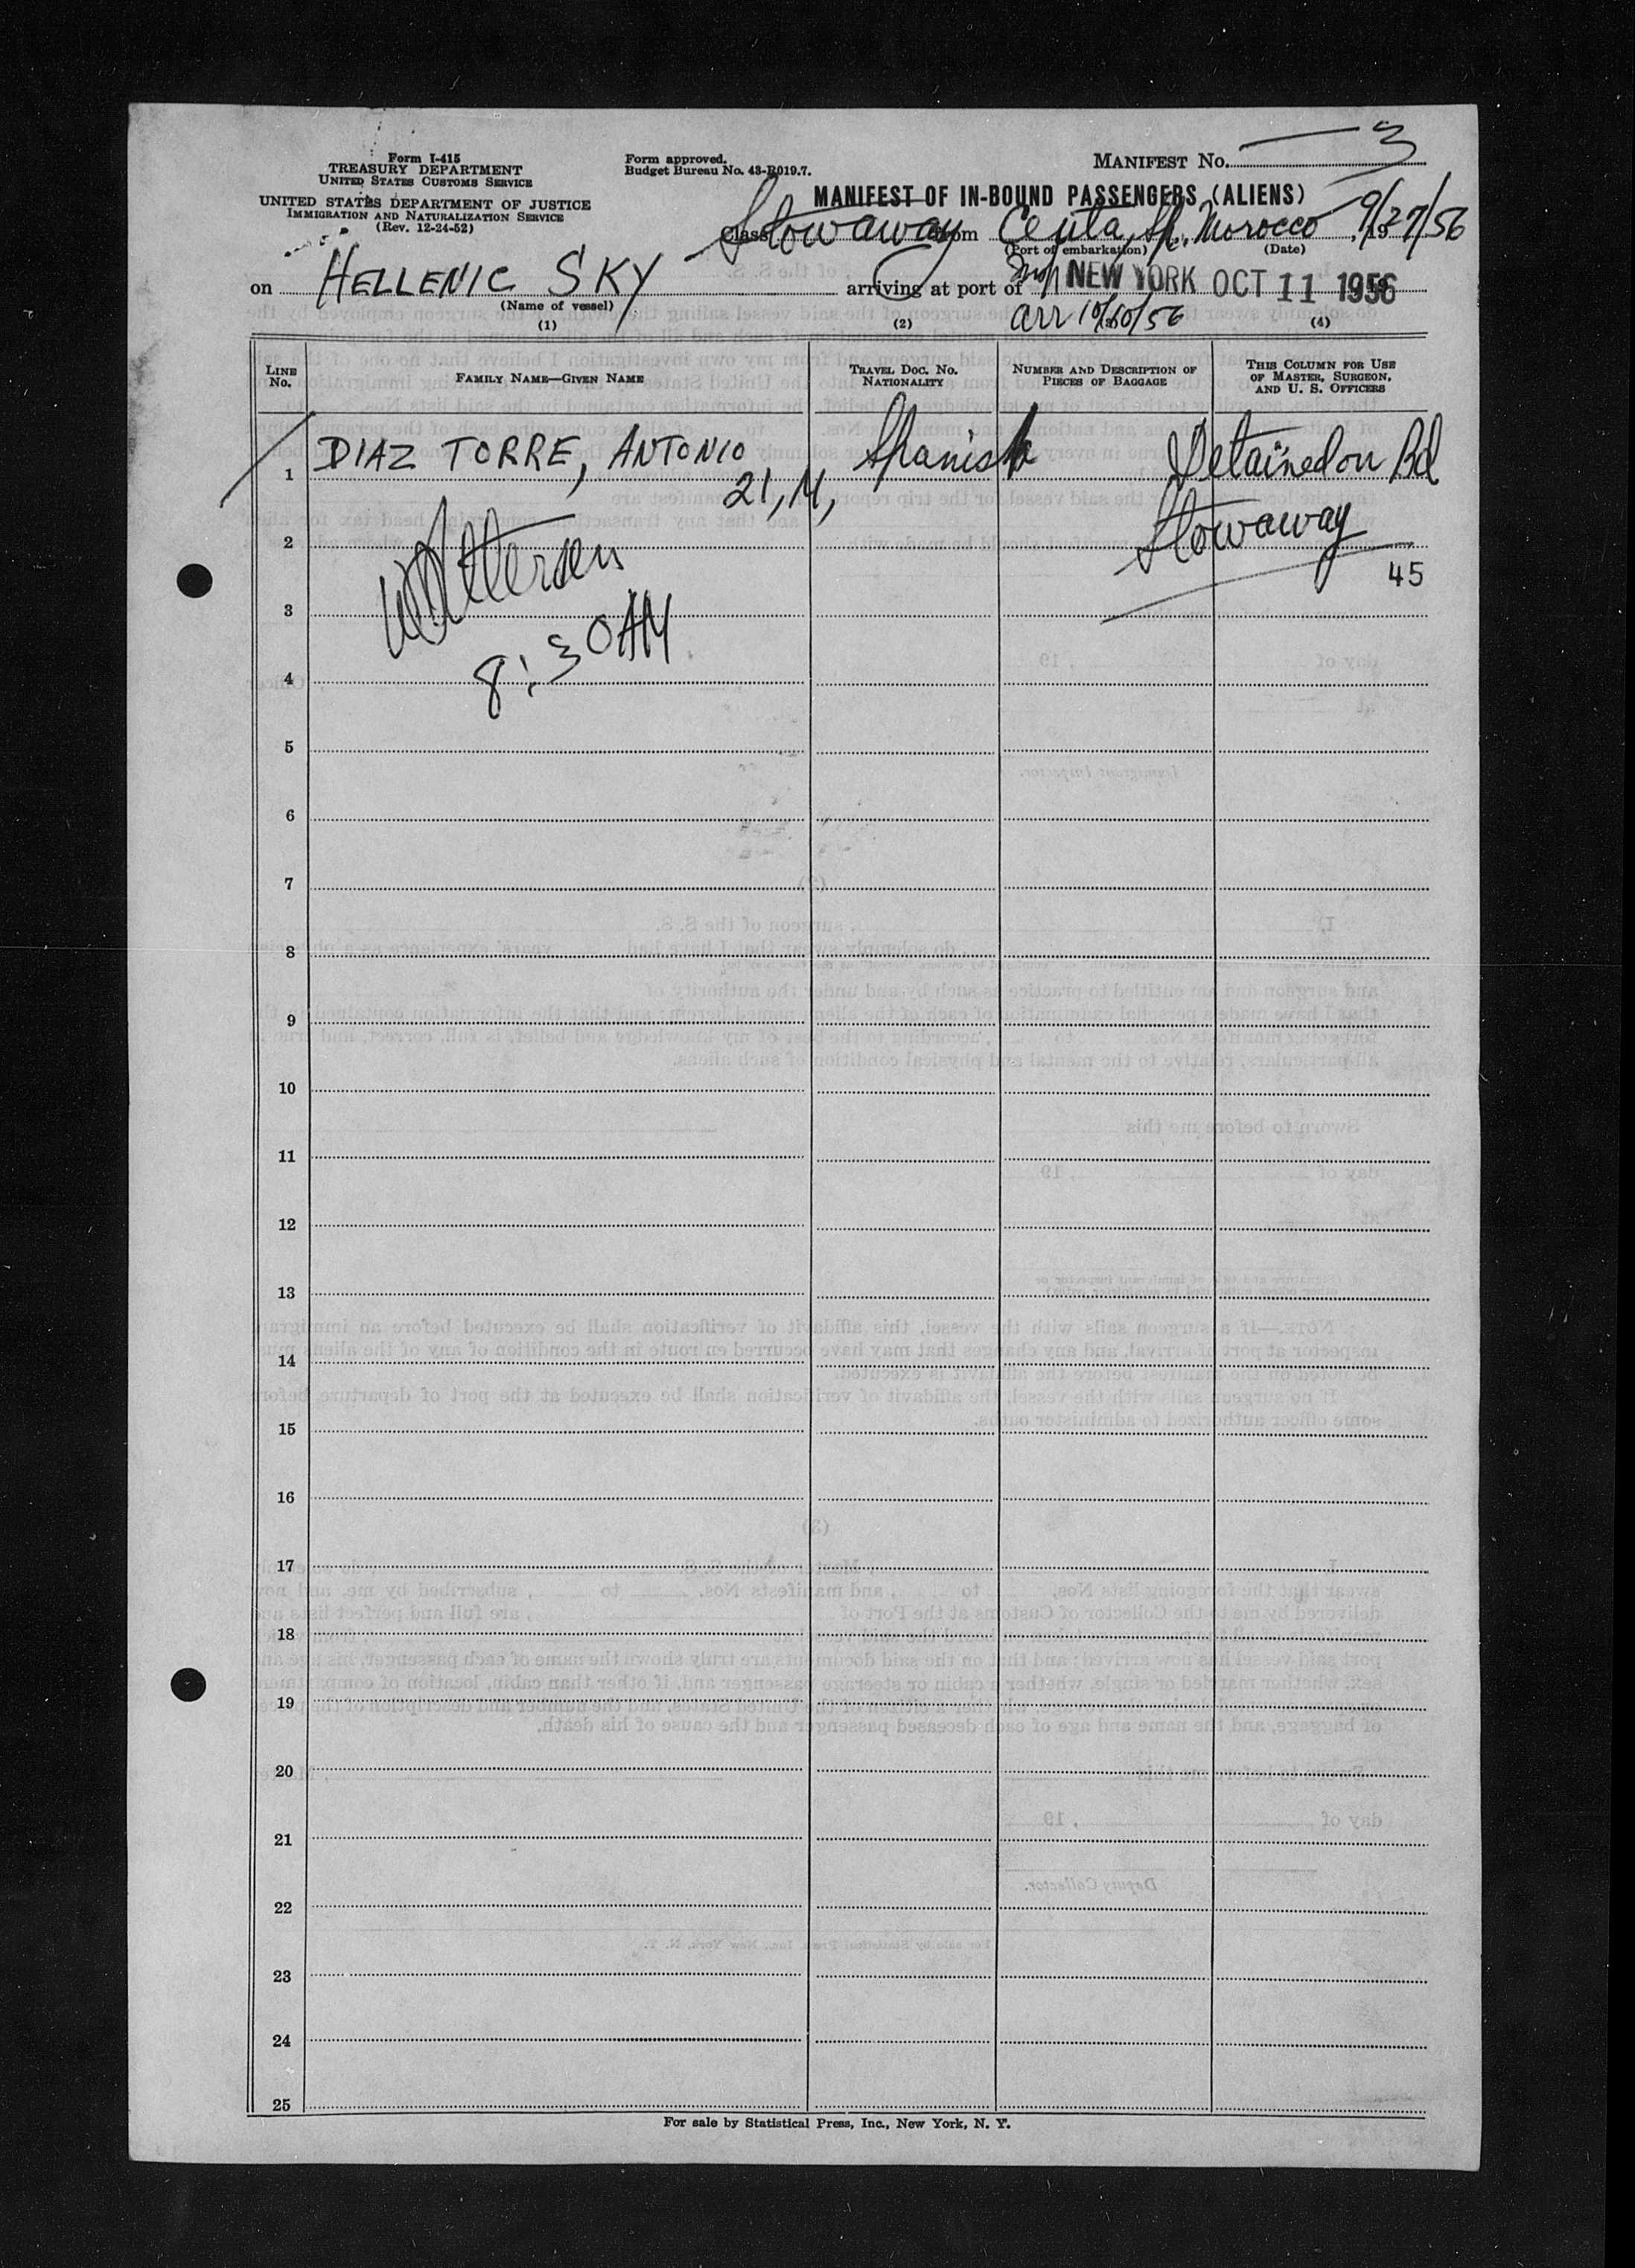 Form I-415
TREASURY DEPARTMENT
UNITED STATES CUSTOMS SERVICE
UNITED STATES DEPARTMENT OF JUSTICE
IMMIGRATION AND NATURALIZATION SERVICE
(Rev. 12-24-52)
Form approved.
Budget Bureau No. 43-R019.7.
MANIFEST NO. 3
MANIFEST OF IN-BOUND PASSENGERS (ALIENS)
Class Stowaway from Ceuta, Sp. Morocco 9/27/56, 19
(Port of embarkation) (Date)
on HELLENIC SKY arriving at port of NEW YORK OCT 11 1956
(Name of vessel) arr 10/10/56
(1) (2) (4)
LINE NO.
FAMILY NAME—GIVEN NAME
TRAVEL DOC. NO. NATIONALITY
NUMBER AND DESCRIPTION OF PIECES OF BAGGAGE
THIS COLUMN FOR USE OF MASTER, SURGEON, AND U. S. OFFICERS
1 DIAZ TORRE, ANTONIO Spanish Detained on Bd
21, M,
2 Stowaway
45
3
8:30AM
4
5
6
7
8
9
10
11
12
13
14
15
16
17
18
19
20
21
22
23
24
25
For sale by Statistical Press, Inc., New York, N. Y.